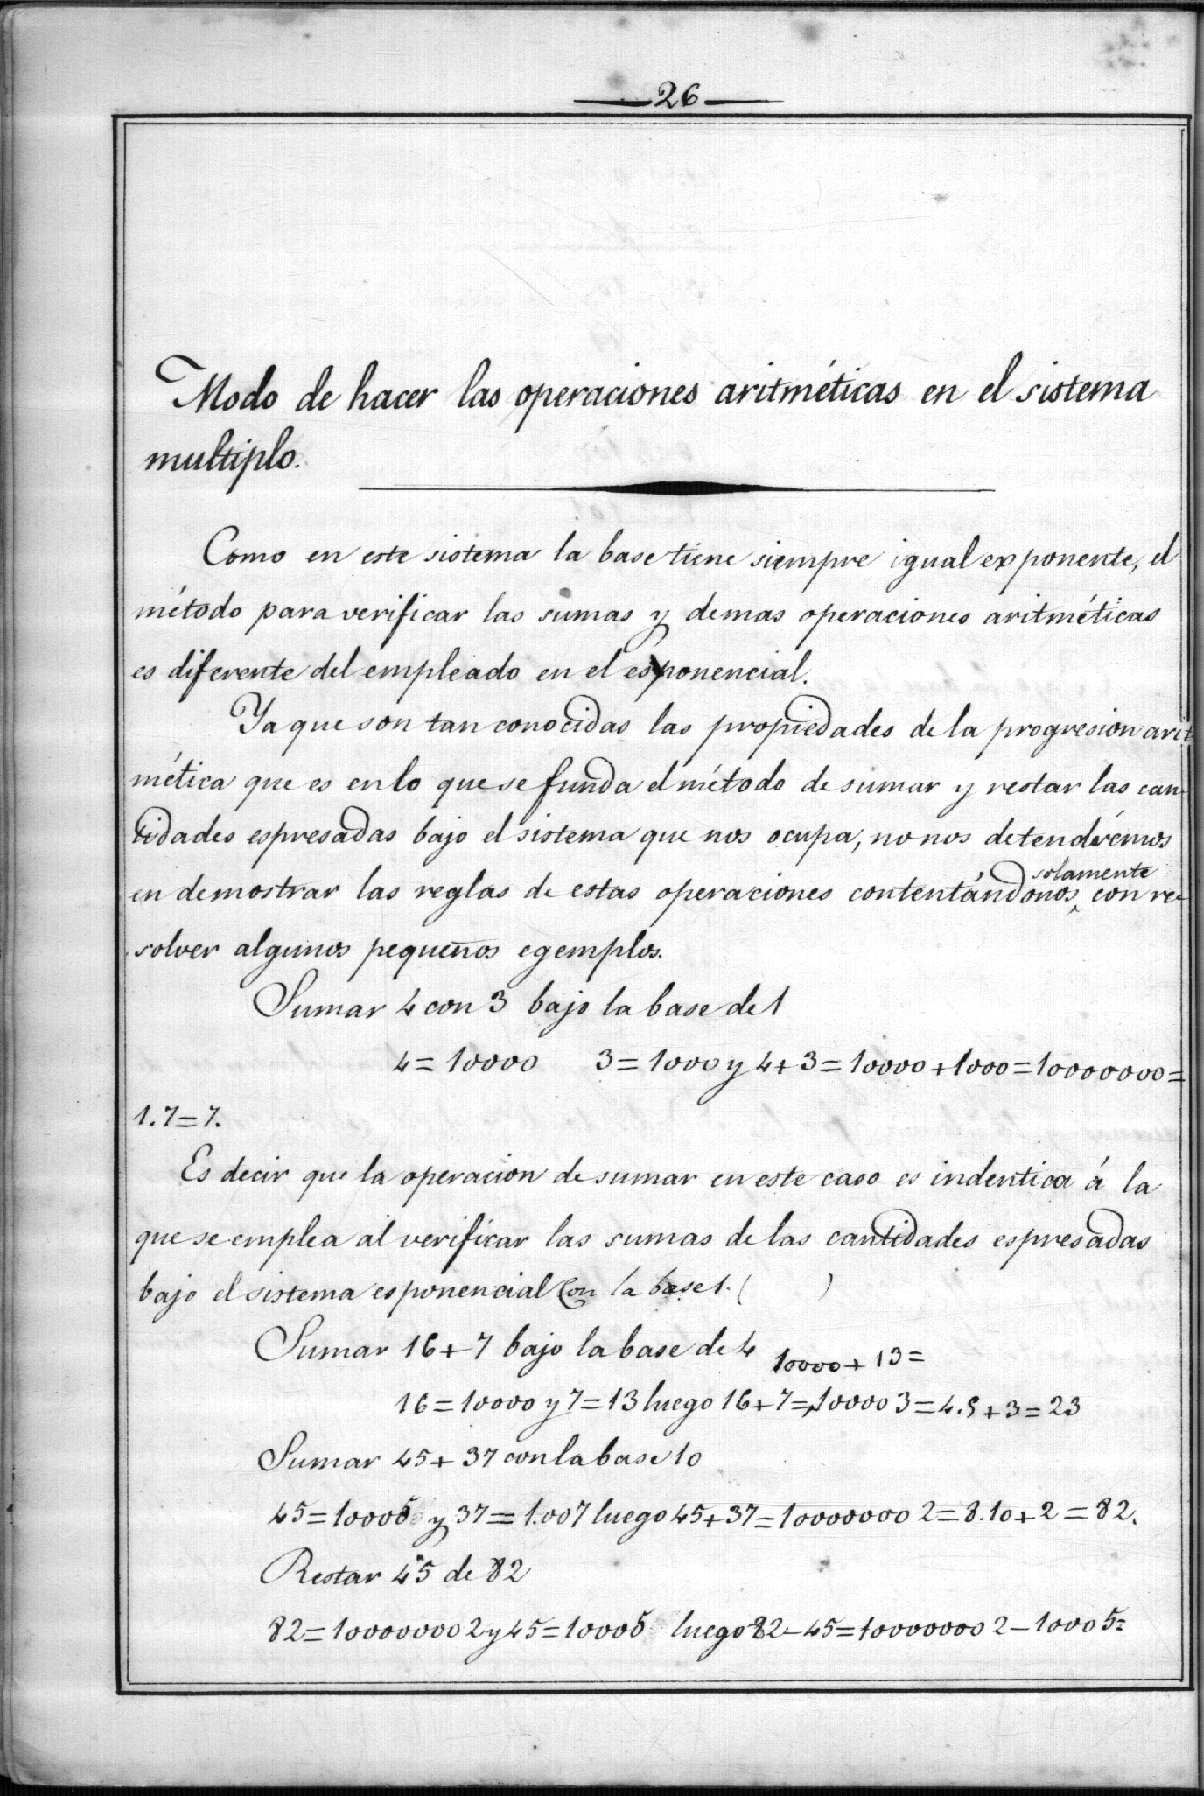 26
Modo de hacer las operaciones aritméticas en el sistema
multiplo.
Como en este sistema la base tiene siempre igual exponente, el
método para verificar las sumas y demas operaciones aritméticas
es diferente del empleado en el esponencial.
Ya que son tan conocidas las propiedades de la progresion arit
mética que es en lo que se funda el método de sumar y restar las can-
tidades espresadas bajo el sistema que nos ocupa, no nos detendrémos
solamente
en demostrar las reglas de estas operaciones contentándonos, con re-
solver algunos pequeños egemplos.
Sumar 4 con 3 bajo la base de 1
4 = 10000 3 = 1000 y 4 + 3 = 10000 + 1000 = 10000000 =
1.7 = 7.
Es decir que la operacion de sumar en este caso es indentica á la
que se emplea al verificar las sumas de las cantidades espresadas
bajo el sistema esponencial con la base 1. ( )
Sumar 16 + 7 bajo la base de 4
10000 + 13 =
16 = 10000 y 7 = 13 luego 16 + 7 = 100003 = 4.5 + 3 = 23
Sumar 45 + 37 con la base 10
45 = 10005 y 37 = 1.007 luego 45 + 37 = 100000000 2 = 8.10 + 2 = 82.
Restar 45 de 82
82 = 100000000 2 y 45 = 10005 luego 82 - 45 = 100000000 2 - 10005 =